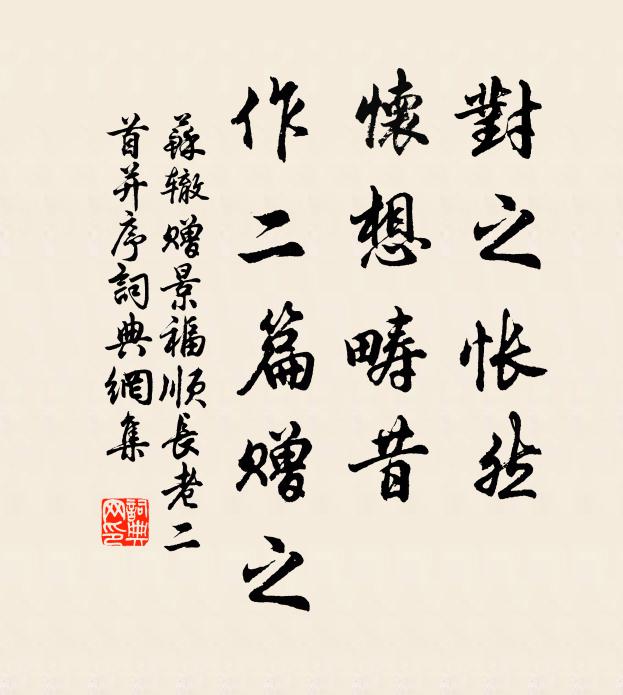 對之悵然
懷想疇昔
作二篇赠之
蘇辙赠景福順長老二
首并序詞典網集
詞典网印